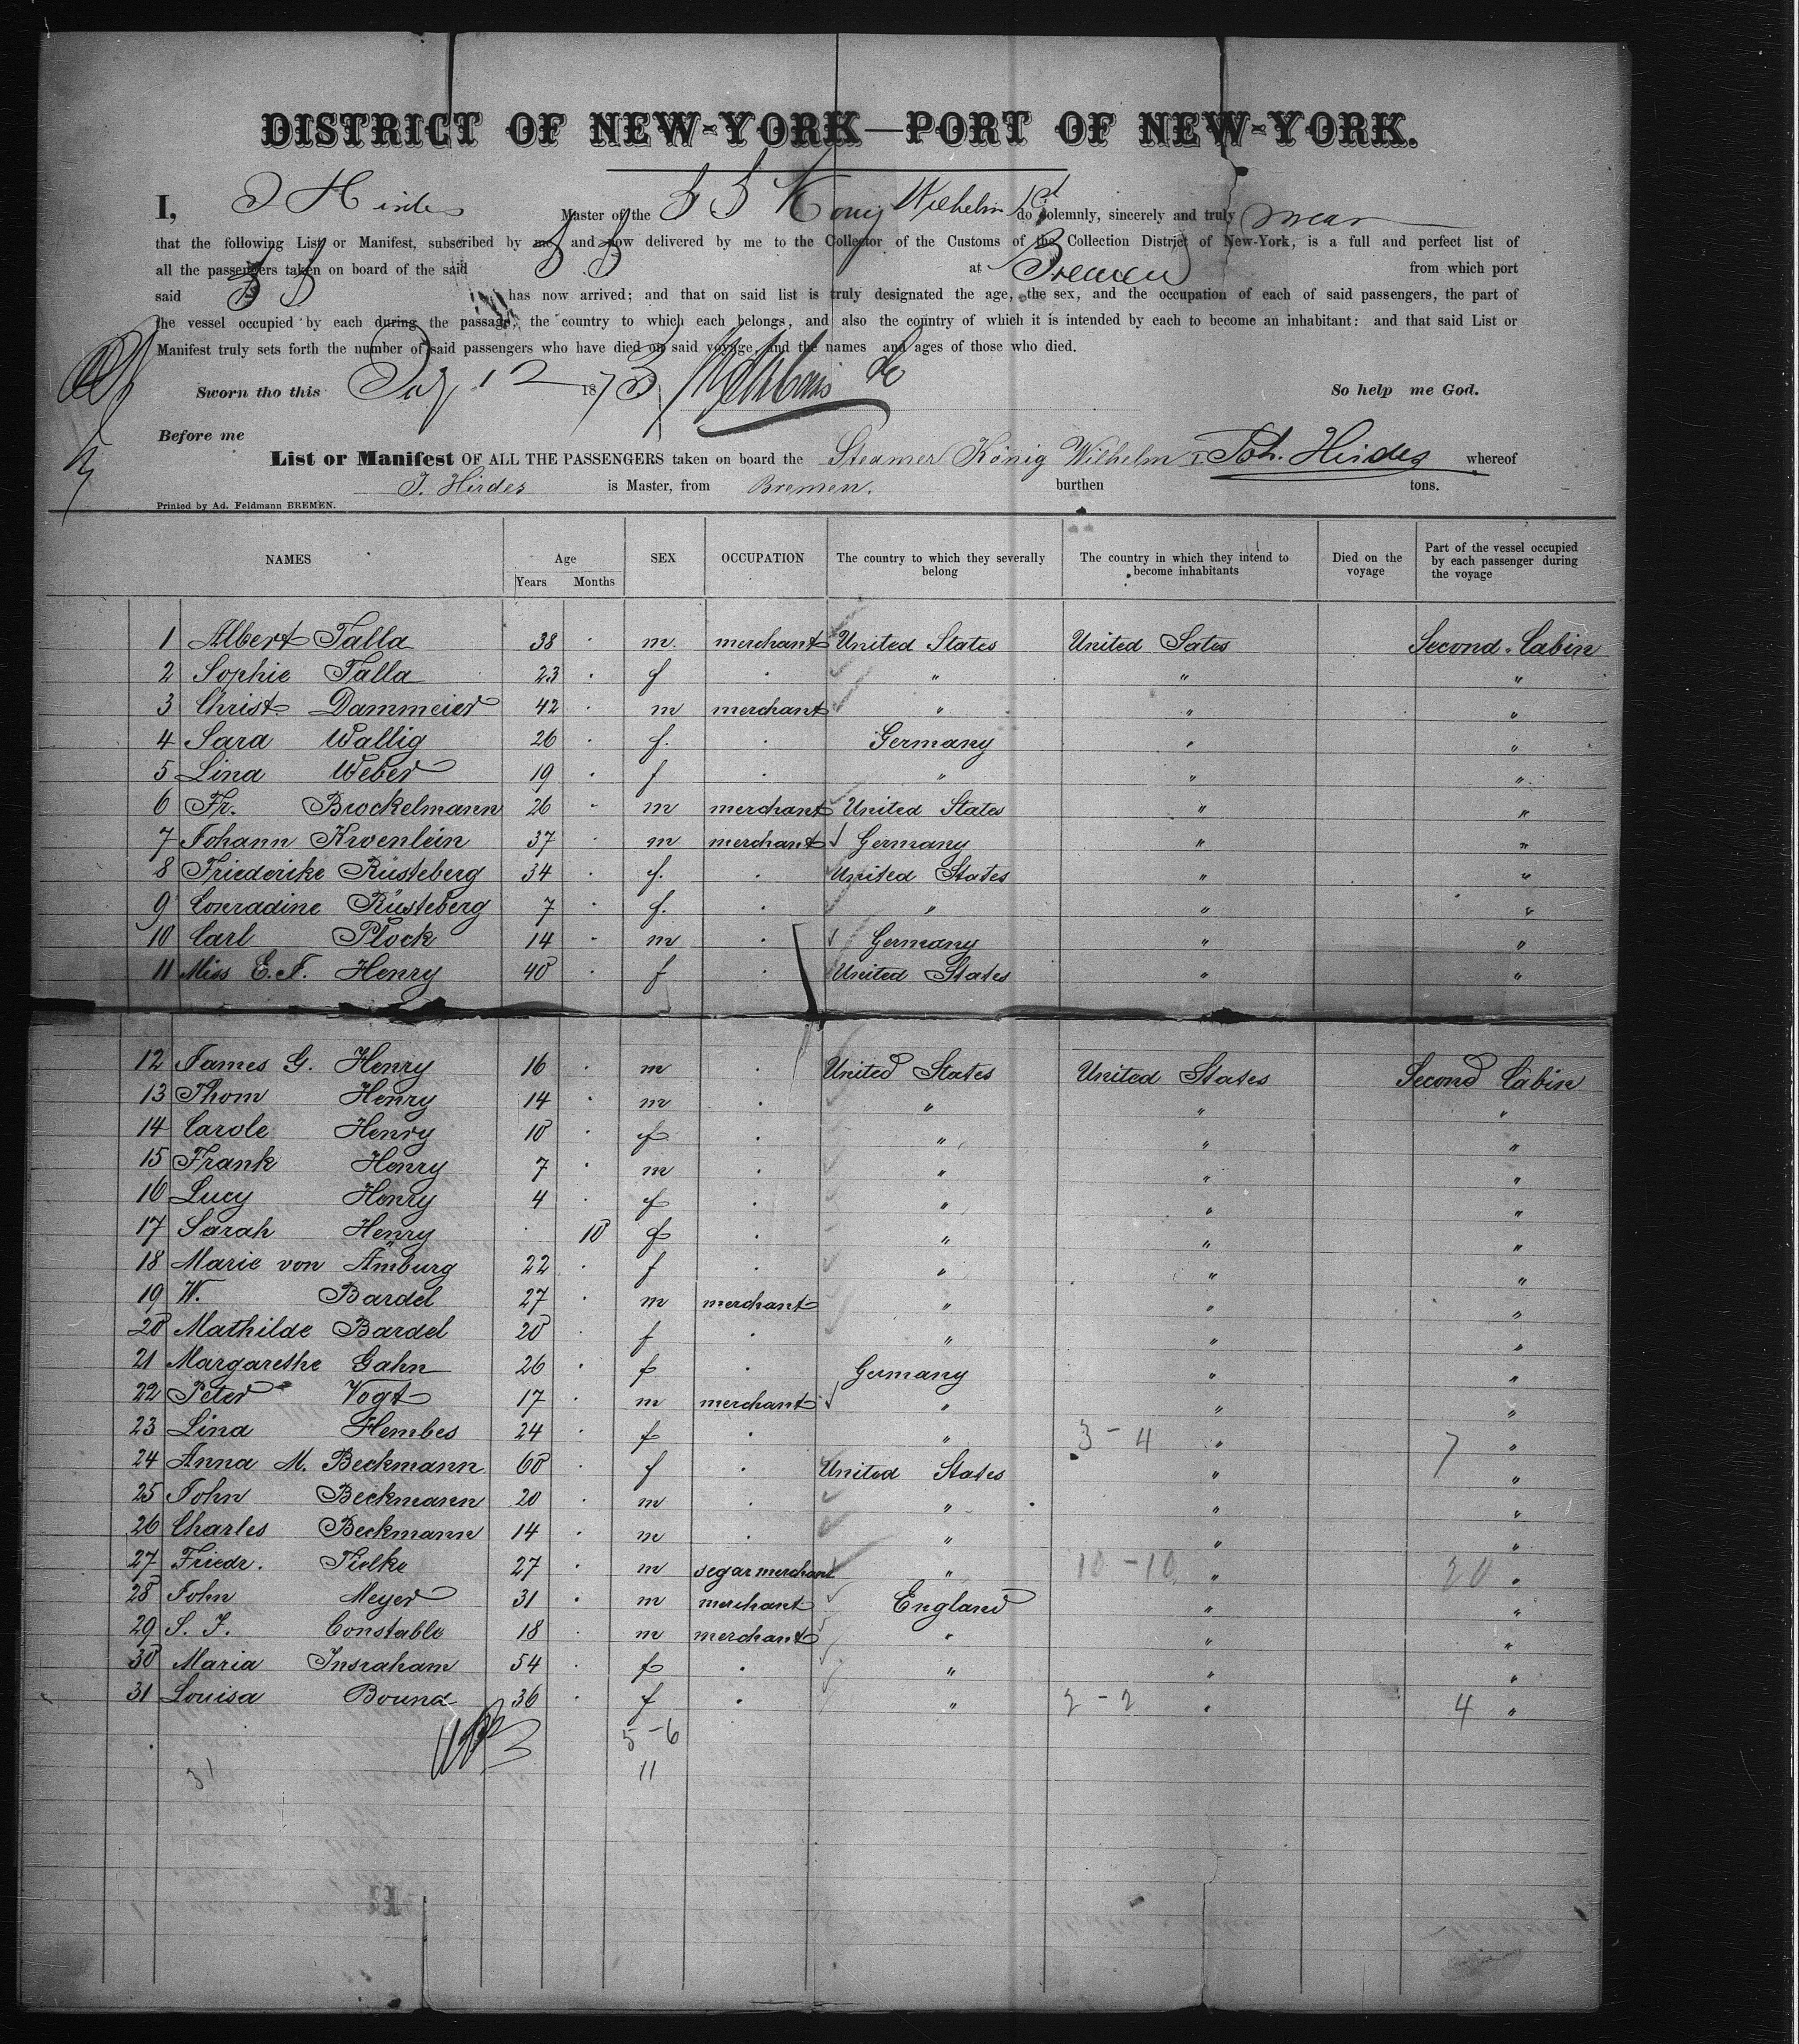 DISTRICT OF NEW-YORK—PORT OF NEW-YORK.
I, J Hirdes Master of the S S Konig Wilhelm 1st do solemnly, sincerely and truly swear
that the following List or Manifest, subscribed by me and now delivered by me to the Collector of the Customs of the Collection District of New-York, is a full and perfect list of
all the passengers taken on board of the said S S at Bremen from which port
said S S has now arrived; and that on said list is truly designated the age, the sex, and the occupation of each of said passengers, the part of
the vessel occupied by each during the passage, the country to which each belongs, and also the country of which it is intended by each to become an inhabitant: and that said List or
Manifest truly sets forth the number of said passengers who have died on said voyage, and the names and ages of those who died.
Sworn tho this 12 1873 So help me God.
Before me
List or Manifest OF ALL THE PASSENGERS taken on board the Steamer König Wilhelm I. Joh. Hirdes whereof
J. Hirdes is Master, from Bremen. burthen tons.
Printed by Ad. Feldmann BREMEN.
NAMES Age Years Months SEX OCCUPATION The country to which they severally belong The country in which they intend to become inhabitants Died on the voyage Part of the vessel occupied by each passenger during the voyage
1 Albert Talla 38 m. merchant United States United Sates Second Cabin
2 Sophie Talla 23 f " " "
3 Christ. Dammeier 42 m merchant " " "
4 Sara Wallig 26 f. Germany " "
5 Lina Weber 19 f " " "
6 Fr. Brockelmann 26 m merchant United States " "
7 Johann Kroenlein 37 m merchant Germany " "
8 Friederike Rüsteberg 34 f. United States " "
9 Conradine Rüsteberg 7 f. " " "
10 Carl Plock 14 m Germany " "
11 Miss E. F. Henry 40 f United States " "
12 James G. Henry 16 m United States United States Second Cabin
13 Thom Henry 14 m " " "
14 Carole Henry 10 f " " "
15 Frank Henry 7 m " " "
16 Lucy Henry 4 f " " "
17 Sarah Henry 10 f " " "
18 Marie von Amburg 22 f " " "
19 W. Bardel 27 m merchant " " "
20 Mathilde Bardel 20 f " " "
21 Margarethe Gahn 26 f Germany " "
22 Peter Vogt 17 m merchant " " "
23 Lina Hembes 24 f " 3 - 4 " 7 "
24 Anna M. Beckmann 60 f United States " "
25 John Beckmann 20 m " " "
26 Charles Beckmann 14 m " " "
27 Friedr. Tielke 27 m segarmerchant " 10 - 10 " 20 "
28 John Meyer 31 m merchant England " "
29 S. J. Constable 18 m merchant " " "
30 Maria Insraham 54 f " " "
31 Louisa Bound 36 f " 2 - 2 " 4 "
5 - 6
31 11